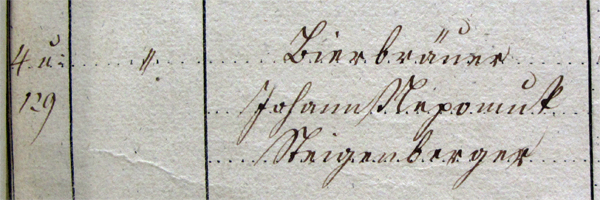 4. u: " Bierbräuer
129 Johann Nepomuk
Steigenberger